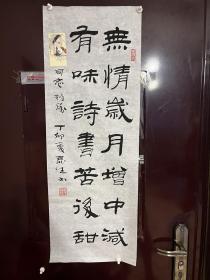 無情歲月增中減
有味詩書苦後甜
丁卯夏